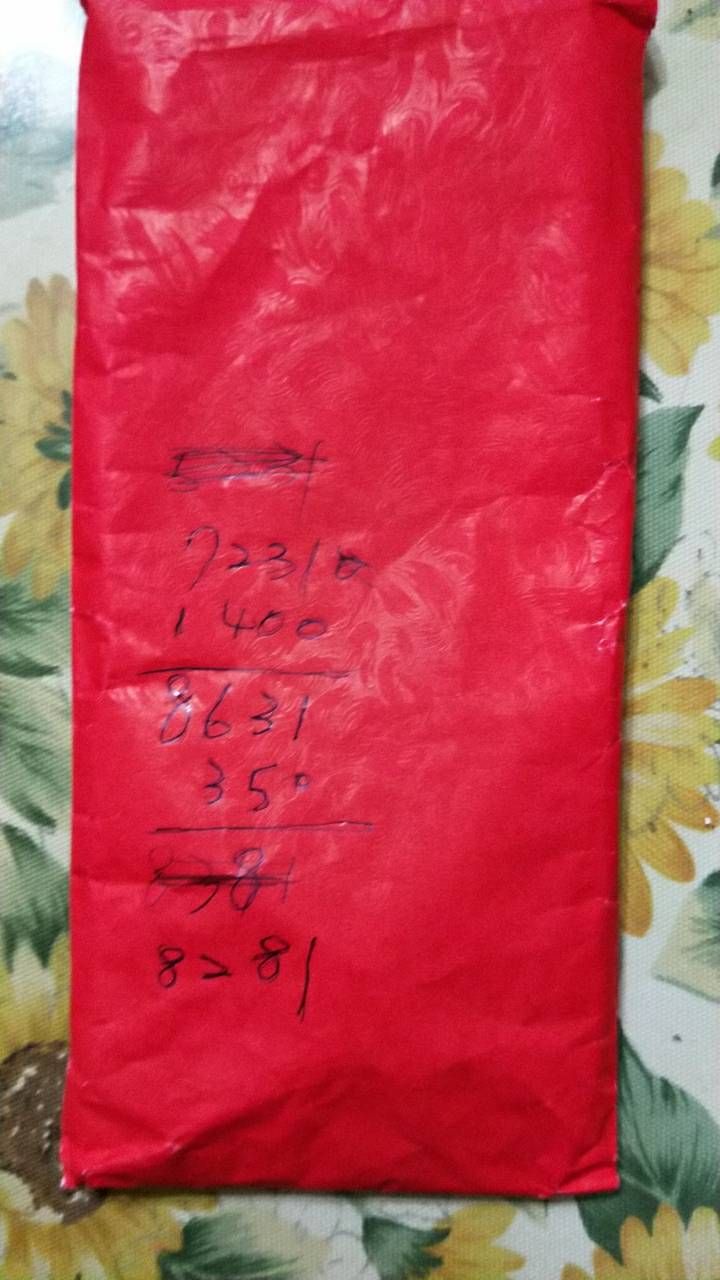 7231
1400
8631
350
8281